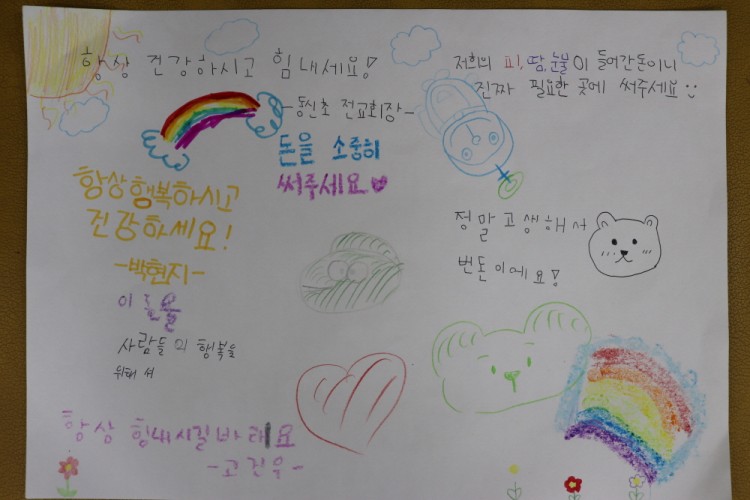 항상 건강하시고 힘내세요!
-동신초 전교회장-
저희의 피, 땀, 눈물이 들어간돈이니
진짜 필요한 곳에 써주세요
돈을 소중히
써주세요♥
항상행복하시고
건강하세요!
-박현지-
정말 고생해서
번돈이에요!
이 돈을
사람들의 행복을
위해 써
항상 힘내시길바래요
-고건우-